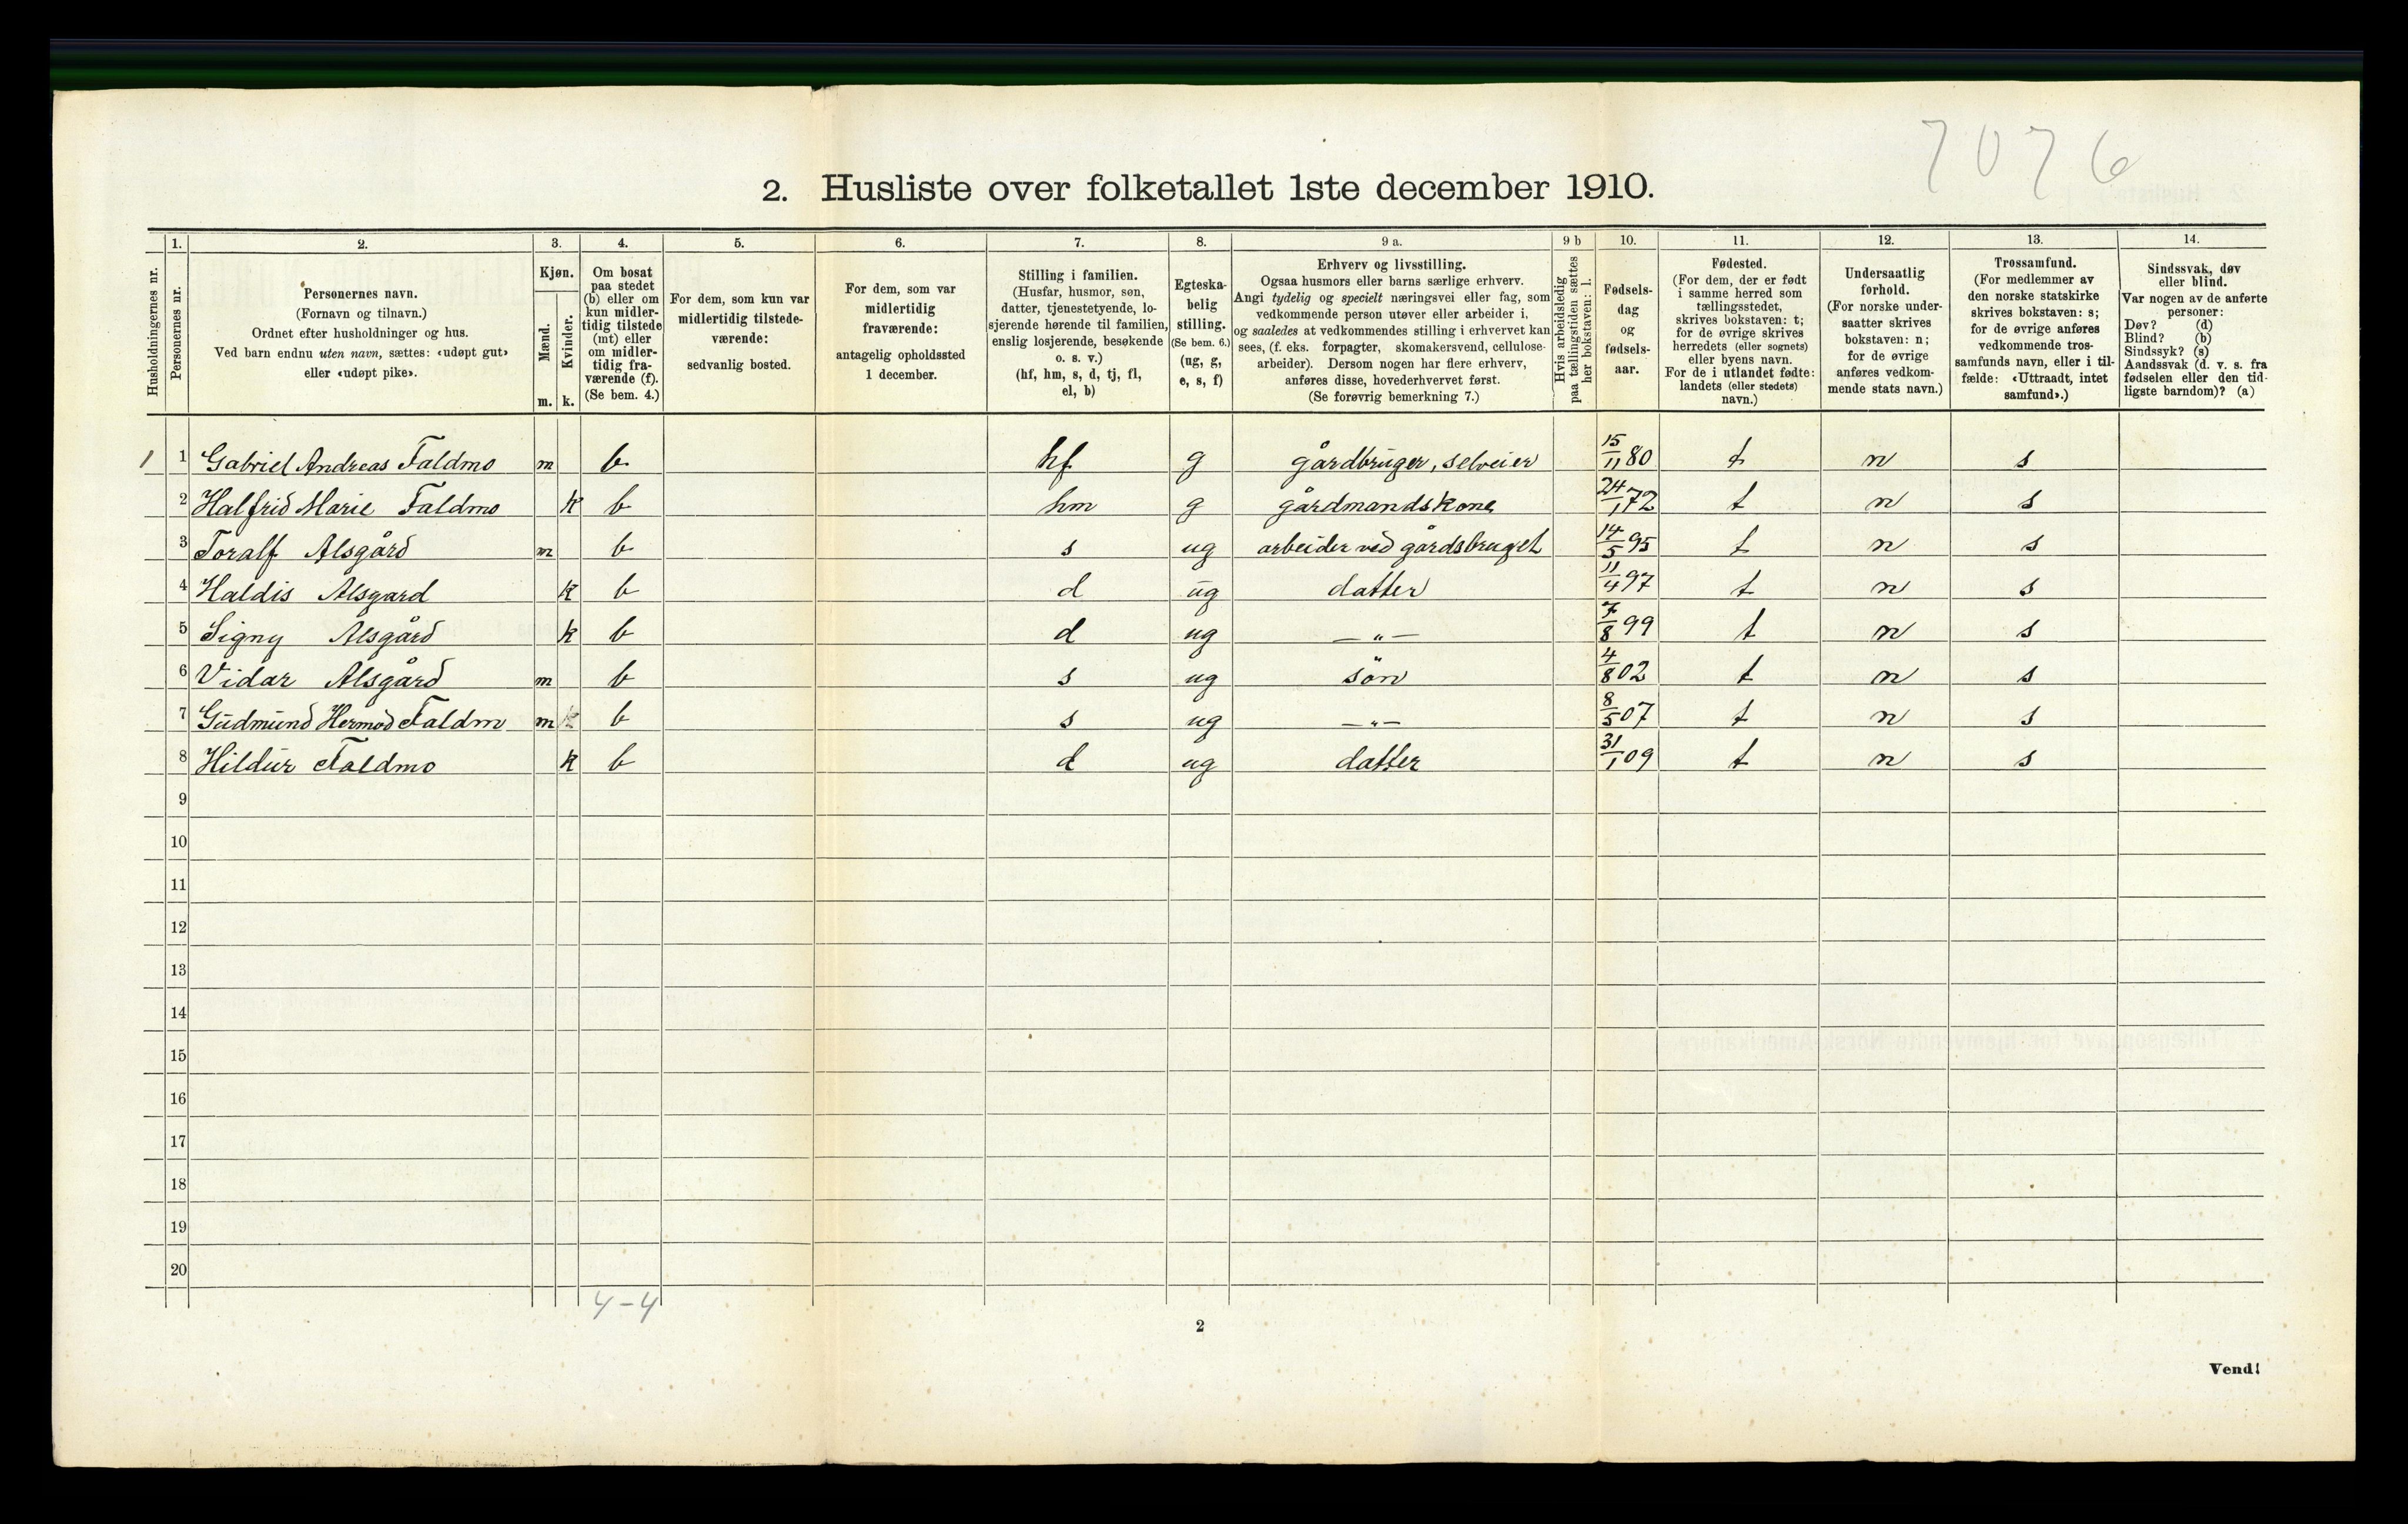 7076
2. Husliste over folketallet 1ste december 1910.
Husholdningernes nr.
1.
Personernes nr.
2.
Personernes navn.
(Fornavn og tilnavn.)
Ordnet efter husholdninger og hus.
Ved barn endnu uten navn, sættes: «udøpt gut»
eller «udøpt pike».
3.
Kjøn.
Mænd.
Kvinder.
m. k.
4.
Om bosat
paa stedet
(b) eller om
kun midler-
tidig tilstede
(mt) eller
om midler-
tidig fra-
værende (f).
(Se bem. 4.)
5.
For dem, som kun var
midlertidig tilstede-
værende:
sedvanlig bosted.
6.
For dem, som var
midlertidig
fraværende:
antagelig opholdssted
1 december.
7.
Stilling i familien.
(Husfar, husmor, søn,
datter, tjenestetyende, lo-
sjerende hørende til familien,
enslig losjerende, besøkende
o. s. v.)
(hf, hm, s, d, tj, fl,
el, b)
8.
Egteska-
belig
stilling.
(Se bem. 6.)
(ug, g,
e, s, f)
9 a.
Erhverv og livsstilling.
Ogsaa husmors eller barns særlige erhverv.
Angi tydelig og specielt næringsvei eller fag, som
vedkommende person utøver eller arbeider i,
og saaledes at vedkommendes stilling i erhvervet kan
sees, (f. eks. forpagter, skomakersvend, cellulose-
arbeider). Dersom nogen har flere erhverv,
anføres disse, hovederhvervet først.
(Se forøvrig bemerkning 7.)
9 b
Hvis arbeidsledig
paa tællingstiden sættes
her bokstaven: l.
10.
Fødsels-
dag
og
fødsels-
aar.
11.
Fødested.
(For dem, der er født
i samme herred som
tællingsstedet,
skrives bokstaven: t;
for de øvrige skrives
herredets (eller sognets)
eller byens navn.
For de i utlandet fødte:
landets (eller stedets)
navn.)
12.
Undersaatlig
forhold.
(For norske under-
saatter skrives
bokstaven: n;
for de øvrige
anføres vedkom-
mende stats navn.)
13.
Trossamfund.
(For medlemmer av
den norske statskirke
skrives bokstaven: s;
for de øvrige anføres
vedkommende tros-
samfunds navn, eller i til-
fælde: «Uttraadt, intet
samfund».)
14.
Sindssvak, døv
eller blind.
Var nogen av de anførte
personer:
Døv? (d)
Blind? (b)
Sindssyk? (s)
Aandssvak (d. v. s. fra
fødselen eller den tid-
ligste barndom)? (a)
1 1 Gabriel Andreas Faldmo m b hf g gårdbruger, selveier 15/11 80 t n s
2 Halfrid Marie Faldmo k b hm g gårdmandskone 24/1 72 t n s
3 Toralf Alsgård m b s ug arbeider ved gårdsbruget 14/5 95 t n s
4 Haldis Alsgard k b d ug datter 11/4 97 t n s
5 Signy Alsgård k b d ug — " — 7/8 99 t n s
6 Vidar Alsgård m b s ug sön 4/8 02 t n s
7 Gudmund Hermod Faldm m k b s ug — " — 8/5 07 t n s
8 Hildur Faldmo k b d ug datter 31/1 09 t n s
9
10
11
12
13
14
15
16
17
18
19
20
4-4
2
Vend!